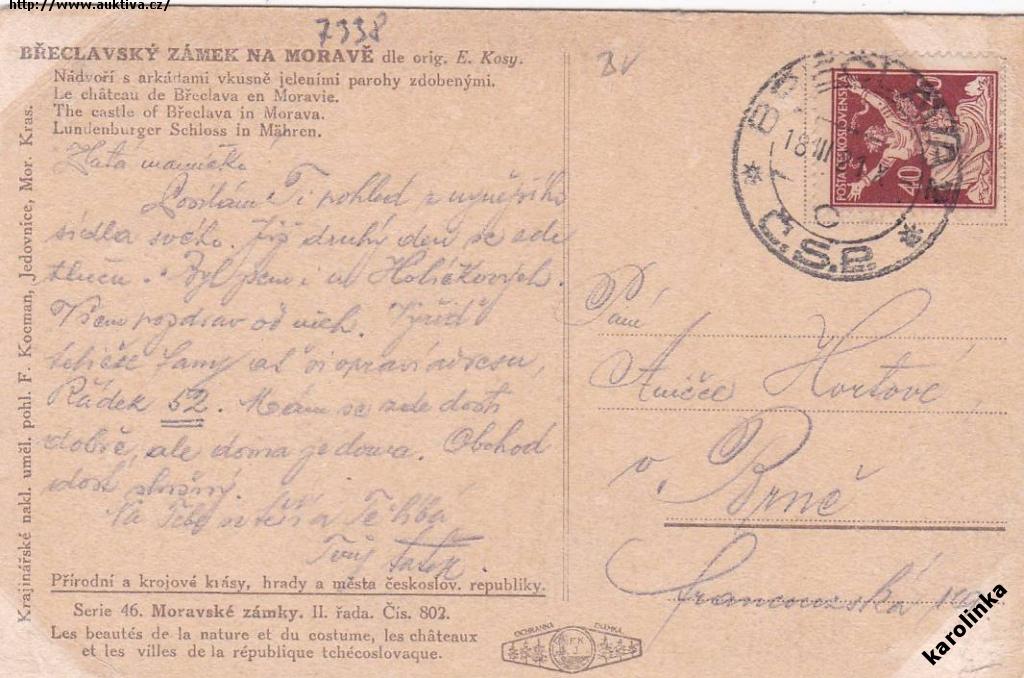 http://www.auktiva.cz/
7338
BŘECLAVSKÝ ZÁMEK NA MORAVĚ dle orig. E. Kosy.
Nádvoří s arkádami vkusně jeleními parohy zdobenými.
Le château de Břeclava en Moravie.
The castle of Břeclava in Morava.
Lundenburger Schloss in Mähren.
Zlatá maminko
Posílám Ti pohled z nynějšího
sídla svého. Již druhý den se zde
tluču. Byl jsem i u Holíčkových.
Všem pozdrav od nich. Vyřiď
ať si opraví adresu,
Řádek 52. Mám se zde dosti
dobře, ale doma je doma. Obchod
dosti slušný.
Na Tebe se těší a Tě líbá
Tvůj tatík.
Přírodní a krojové krásy, hrady a města českoslov. republiky.
Serie 46. Moravské zámky. II. řada. Čís. 802.
Les beautés de la nature et du costume, les châteaux
et les villes de la république tchécoslovaque.
Krajinářské nakl. uměl. pohl. F. Kocman, Jedovnice, Mor. Kras.
OCHRANNÁ ZNÁMKA
BŘECLAVA
18 III 21
Č.S.P.
POŠTA ČESKOSLOVENSKÁ
40
Paní
Aničce Hortové
v Brně
Francouzská
karolinka